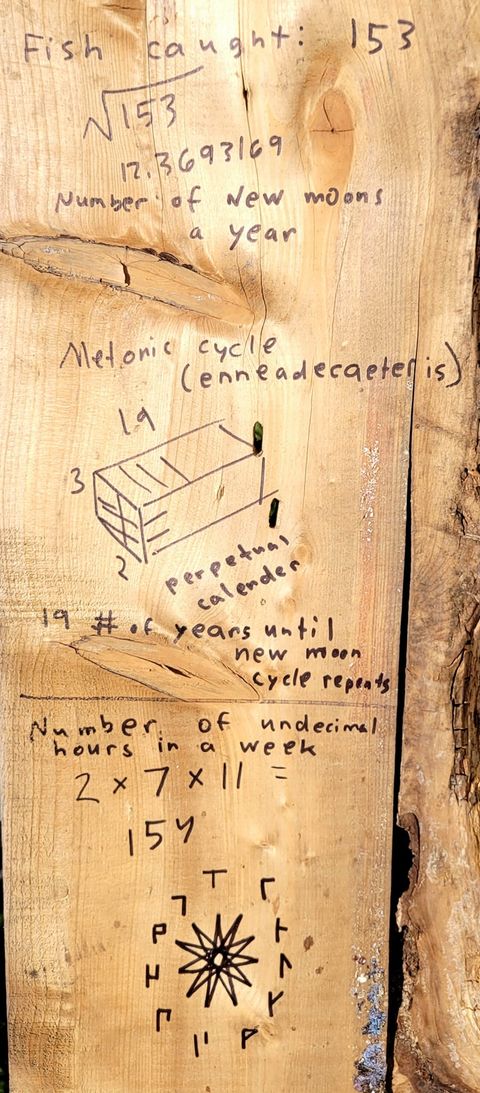 Fish caught: 153
√153
12.3693169
Number of New moons
a year
Metonic cycle
(enneadecaeteris)
19
3
2
perpetual
calender
19 # of years until
new moon
cycle repeats
Number of undecimal
hours in a week
2 × 7 × 11 =
154